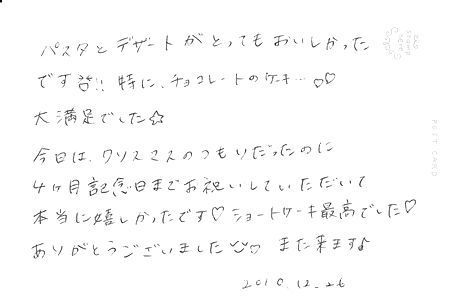 パスタとデザートがとってもおいしかった
です!! 特に、チョコレートのケーキ… ♡♡
大満足でした☆
今日は、クリスマスのつもりだったのに
4ヶ月記念日までお祝いしていただいて
本当に嬉しかったです♡ ショートケーキ最高でした♡
ありがとうございました ♡ また来ます♪
2010.12.26
POST CARD